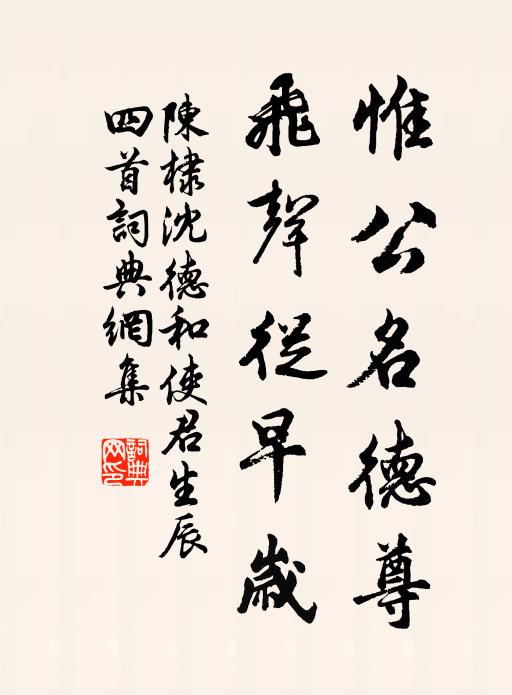 惟公名德尊
飛聲從早歲
陳棣沈德和使君生辰
四首詞典網集
詞典網印